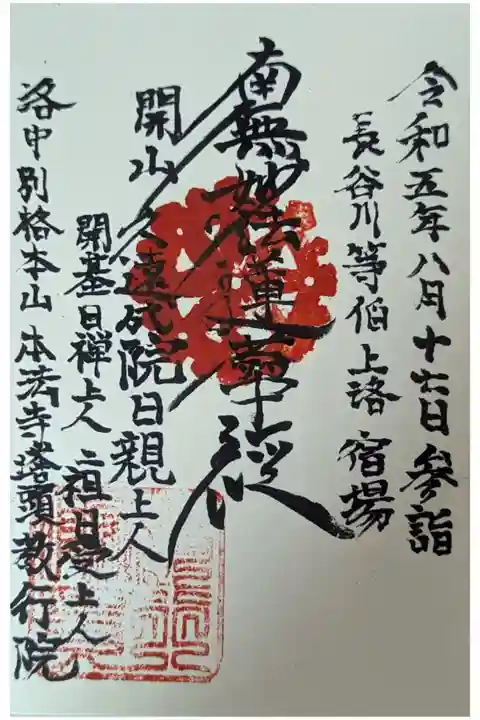 令和五年八月十七日参詣
長谷川等伯上洛宿場
南無妙法蓮華経
開山久遠成院日親上人
開基日禅上人二祖日受上人
洛中別格本山本法寺塔頭教行院